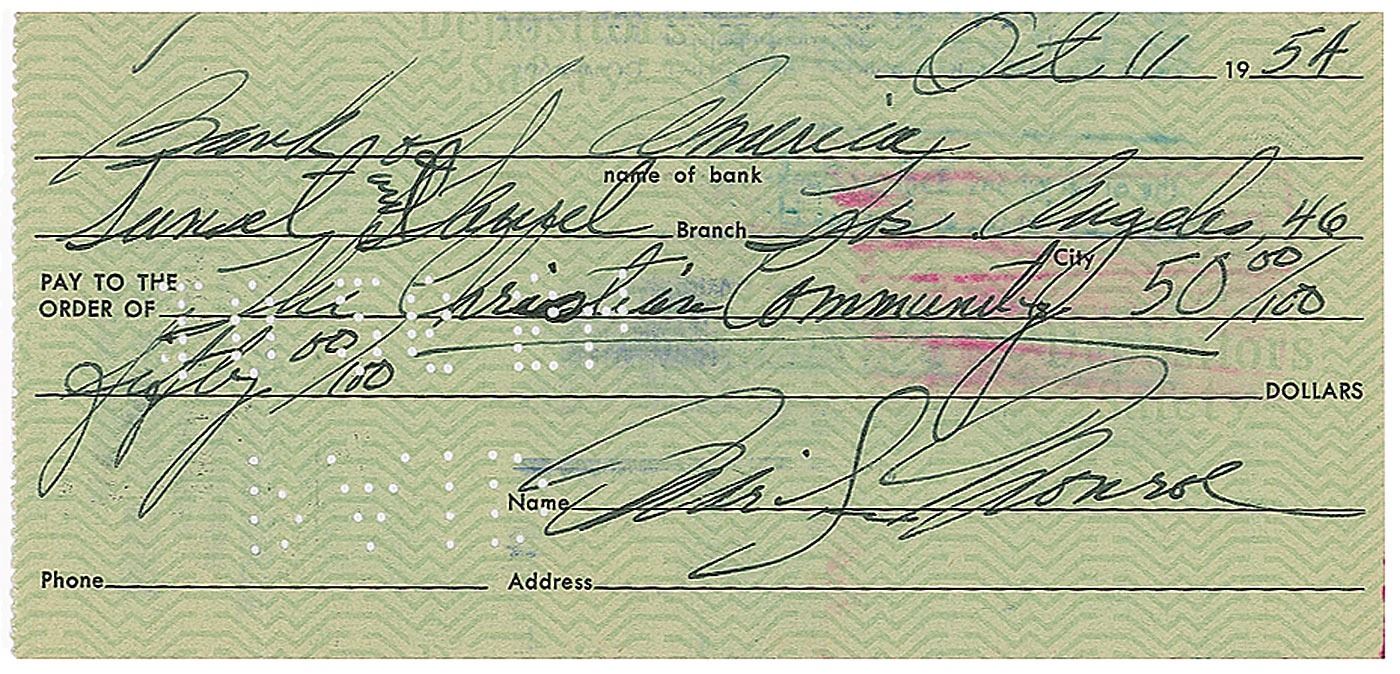 Oct 11 1954
Bank of America
name of bank
Sunset & Laurel Branch Los Angeles, 46
City
PAY TO THE
ORDER OF The Christian Community 50 00/100
Fifty 00/100 DOLLARS
Name Marilyn Monroe
Phone Address